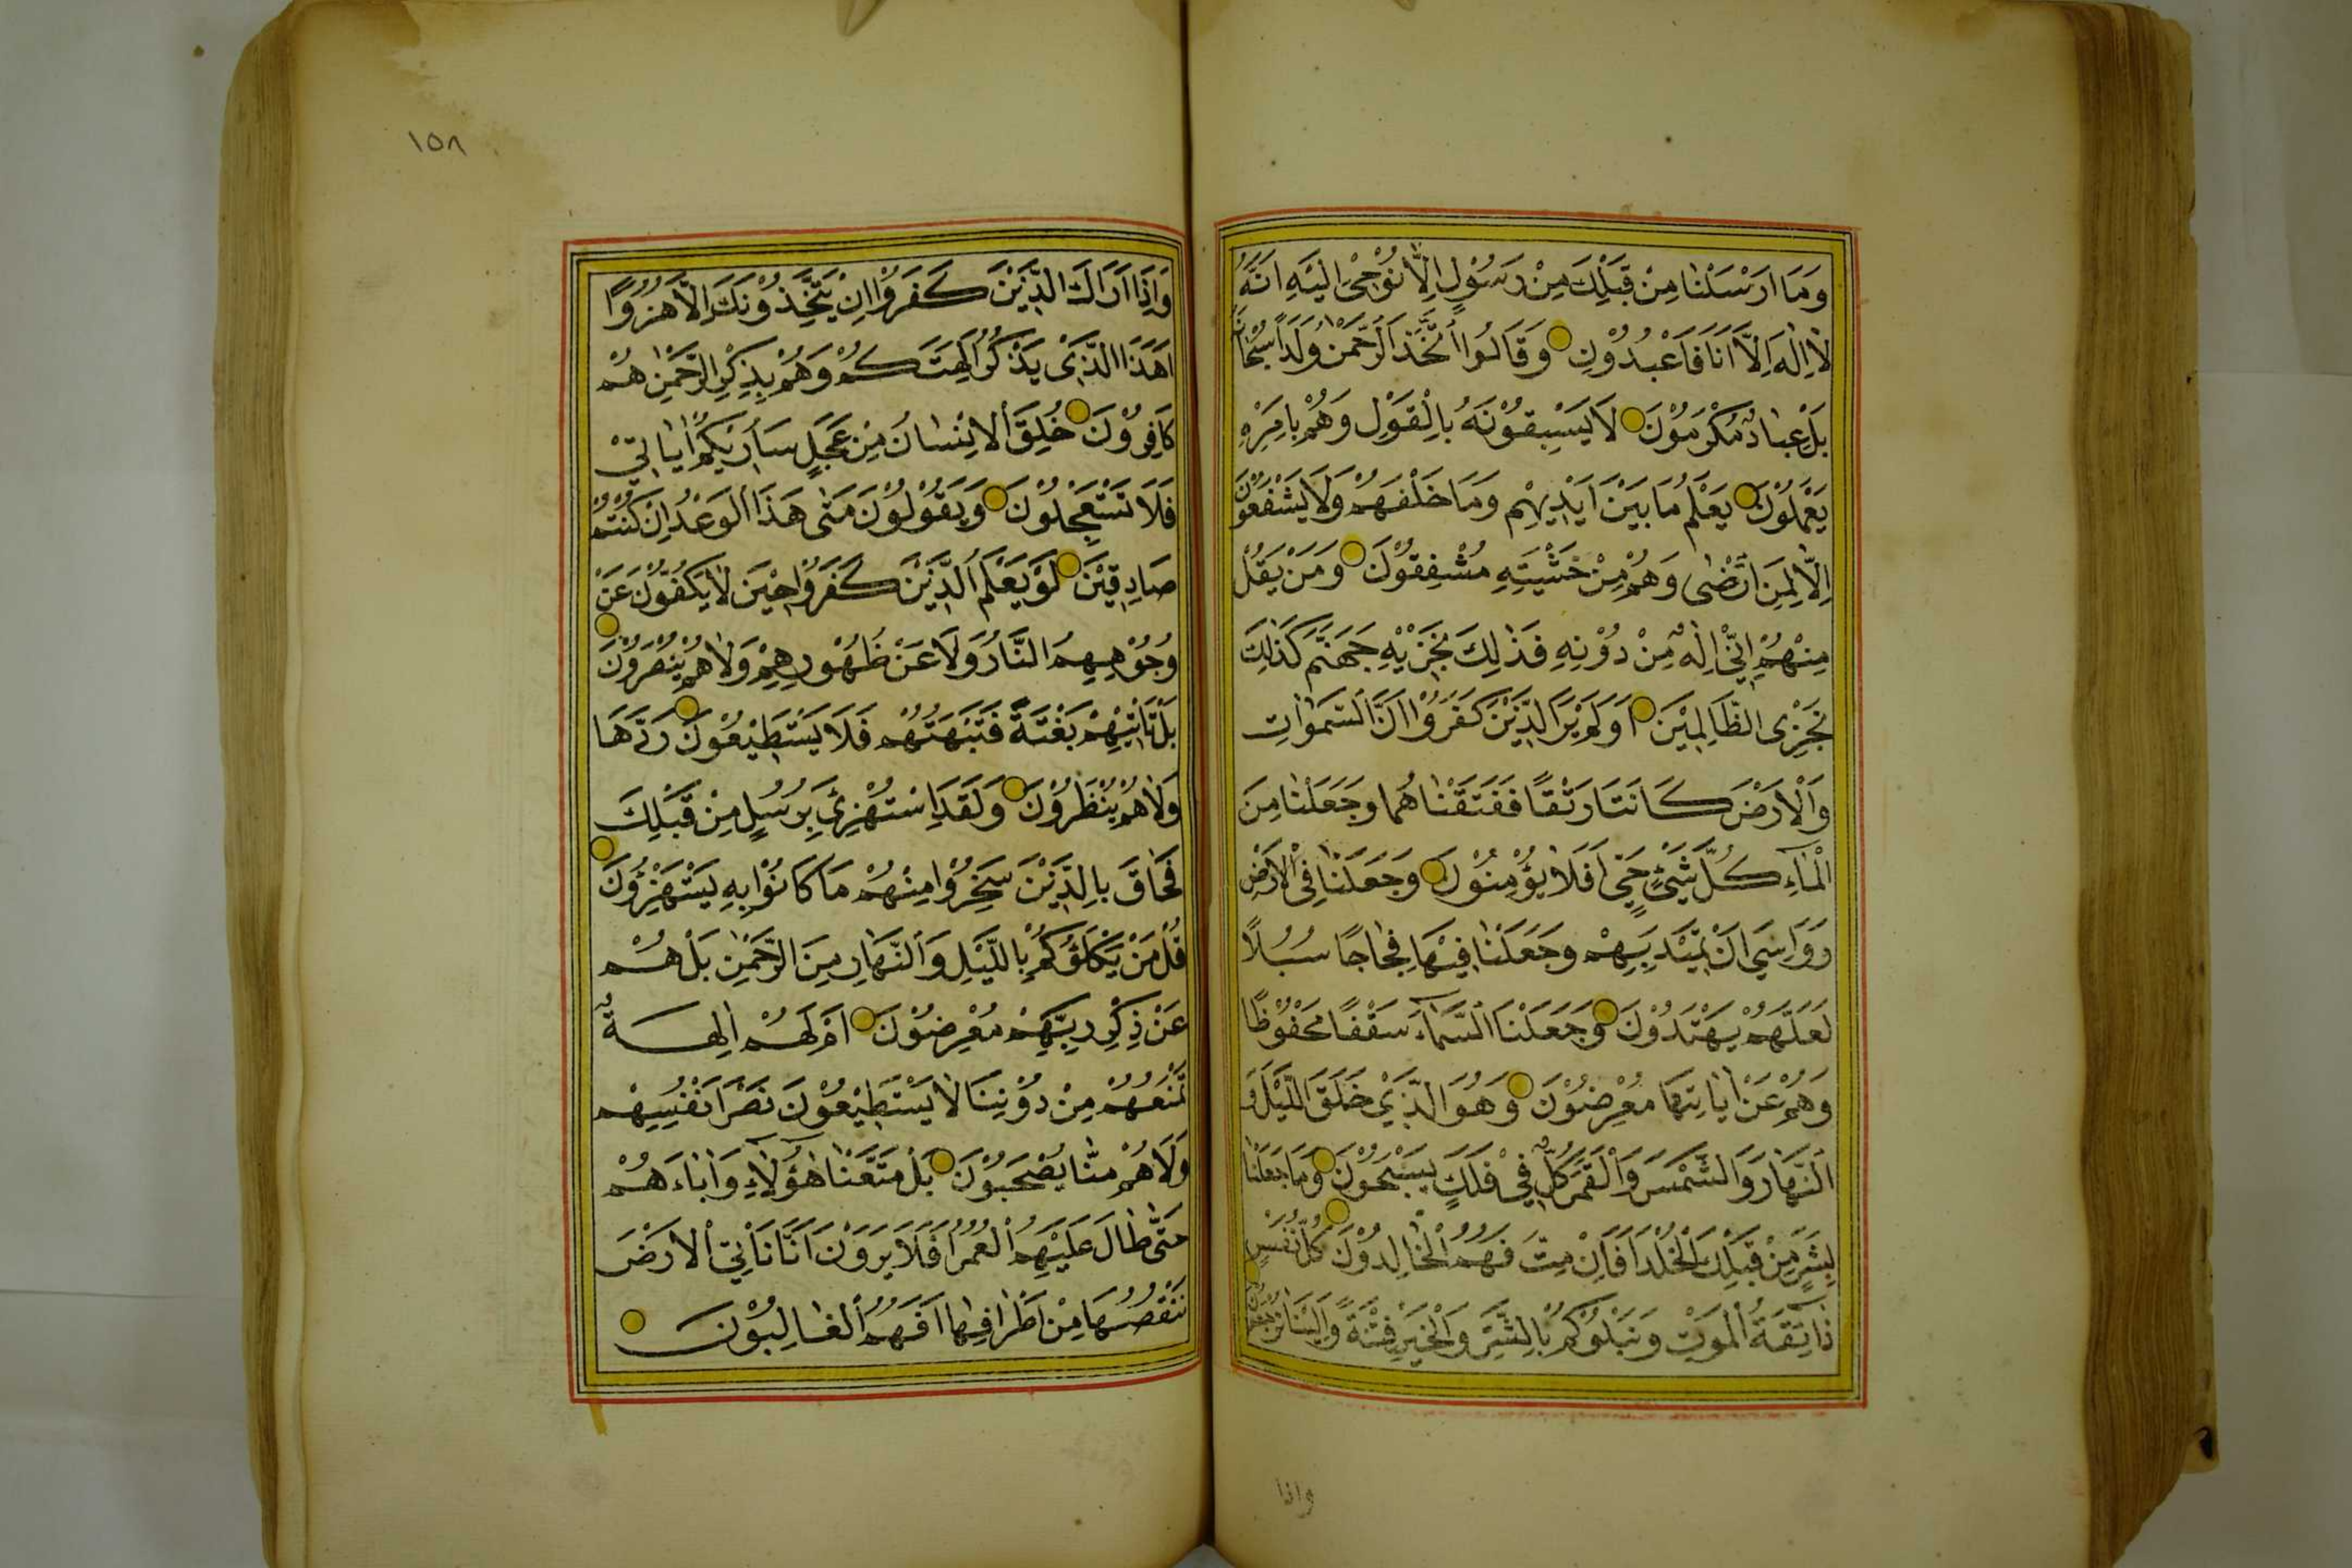 وَمَا اَرْسَلْنَا مِنْ قَبْلِكَ مِنْ رَسُوْلٍ اِلَّا نُوْحِىْ اِلَيْهِ اَنَّهُ
لَا اِلٰهَ اِلَّا اَنَا فَاعْبُدُوْنِ وَقَالُوا اتَّخَذَ الرَّحْمٰنُ وَلَدًا سُبْحَانَهُ
بَلْ عِبَادٌ مُكْرَمُوْنَ لَا يَسْبِقُوْنَهُ بِالْقَوْلِ وَهُمْ بِاَمْرِهِ
يَعْمَلُوْنَ يَعْلَمُ مَا بَيْنَ اَيْدِيْهِمْ وَمَا خَلْفَهُمْ وَلَا يَشْفَعُوْنَ
اِلَّا لِمَنِ ارْتَضٰى وَهُمْ مِنْ خَشْيَتِهِ مُشْفِقُوْنَ وَمَنْ يَقُلْ
مِنْهُمْ اِنِّىْ اِلٰهٌ مِنْ دُوْنِهِ فَذٰلِكَ نَجْزِيْهِ جَهَنَّمَ كَذٰلِكَ
نَجْزِى الظَّالِمِيْنَ اَوَلَمْ يَرَ الَّذِيْنَ كَفَرُوْا اَنَّ السَّمٰوَاتِ
وَالْاَرْضَ كَانَتَا رَتْقًا فَفَتَقْنَاهُمَا وَجَعَلْنَا مِنَ
الْمَآءِ كُلَّ شَيْءٍ حَيٍّ اَفَلَا يُؤْمِنُوْنَ وَجَعَلْنَا فِى الْاَرْضِ
رَوَاسِيَ اَنْ تَمِيْدَ بِهِمْ وَجَعَلْنَا فِيْهَا فِجَاجًا سُبُلًا
لَعَلَّهُمْ يَهْتَدُوْنَ وَجَعَلْنَا السَّمَآءَ سَقْفًا مَحْفُوْظًا
وَهُمْ عَنْ اٰيَاتِهَا مُعْرِضُوْنَ وَهُوَ الَّذِيْ خَلَقَ اللَّيْلَ وَ
النَّهَارَ وَالشَّمْسَ وَالْقَمَرَ كُلٌّ فِيْ فَلَكٍ يَسْبَحُوْنَ وَمَا جَعَلْنَا
لِبَشَرٍ مِنْ قَبْلِكَ الْخُلْدَ اَفَاِنْ مِتَّ فَهُمُ الْخَالِدُوْنَ كُلُّ نَفْسٍ
ذَآئِقَةُ الْمَوْتِ وَنَبْلُوْكُمْ بِالشَّرِّ وَالْخَيْرِ فِتْنَةً وَاِلَيْنَا تُرْجَعُوْنَ
واذا
١٥٨
وَاِذَا رَاٰكَ الَّذِيْنَ كَفَرُوْا اِنْ يَتَّخِذُوْنَكَ اِلَّا هُزُوًا
اَهٰذَا الَّذِىْ يَذْكُرُ اٰلِهَتَكُمْ وَهُمْ بِذِكْرِ الرَّحْمٰنِ هُمْ
كَافِرُوْنَ خُلِقَ الْاِنْسَانُ مِنْ عَجَلٍ سَاُرِيْكُمْ اٰيَاتِىْ
فَلَا تَسْتَعْجِلُوْنَ وَيَقُوْلُوْنَ مَتٰى هٰذَا الْوَعْدُ اِنْ كُنْتُمْ
صَادِقِيْنَ لَوْ يَعْلَمُ الَّذِيْنَ كَفَرُوْا حِيْنَ لَا يَكُفُّوْنَ عَنْ
وُجُوْهِهِمُ النَّارَ وَلَا عَنْ ظُهُوْرِهِمْ وَلَا هُمْ يُنْصَرُوْنَ
بَلْ تَاْتِيْهِمْ بَغْتَةً فَتَبْهَتُهُمْ فَلَا يَسْتَطِيْعُوْنَ رَدَّهَا
وَلَا هُمْ يُنْظَرُوْنَ وَلَقَدِ اسْتُهْزِئَ بِرُسُلٍ مِنْ قَبْلِكَ
فَحَاقَ بِالَّذِيْنَ سَخِرُوْا مِنْهُمْ مَا كَانُوْا بِهِ يَسْتَهْزِؤُنَ
قُلْ مَنْ يَكْلَؤُكُمْ بِاللَّيْلِ وَالنَّهَارِ مِنَ الرَّحْمٰنِ بَلْ هُمْ
عَنْ ذِكْرِ رَبِّهِمْ مُعْرِضُوْنَ اَمْ لَهُمْ اٰلِهَةٌ
تَمْنَعُهُمْ مِنْ دُوْنِنَا لَا يَسْتَطِيْعُوْنَ نَصْرَ اَنْفُسِهِمْ
وَلَا هُمْ مِنَّا يُصْحَبُوْنَ بَلْ مَتَّعْنَا هٰؤُلَآءِ وَاٰبَاءَهُمْ
حَتّٰى طَالَ عَلَيْهِمُ الْعُمُرُ اَفَلَا يَرَوْنَ اَنَّا نَاْتِى الْاَرْضَ
نَنْقُصُهَا مِنْ اَطْرَافِهَا اَفَهُمُ الْغَالِبُوْنَ